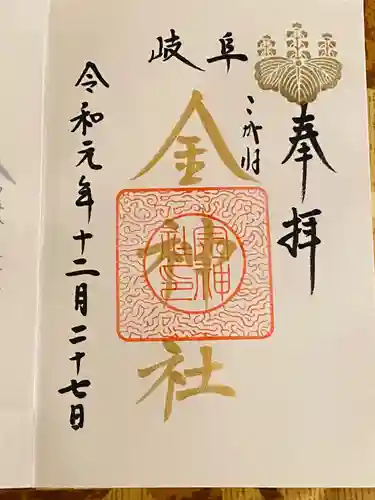 奉拝
こがね
岐阜
金神社
令和元年十二月二十七日